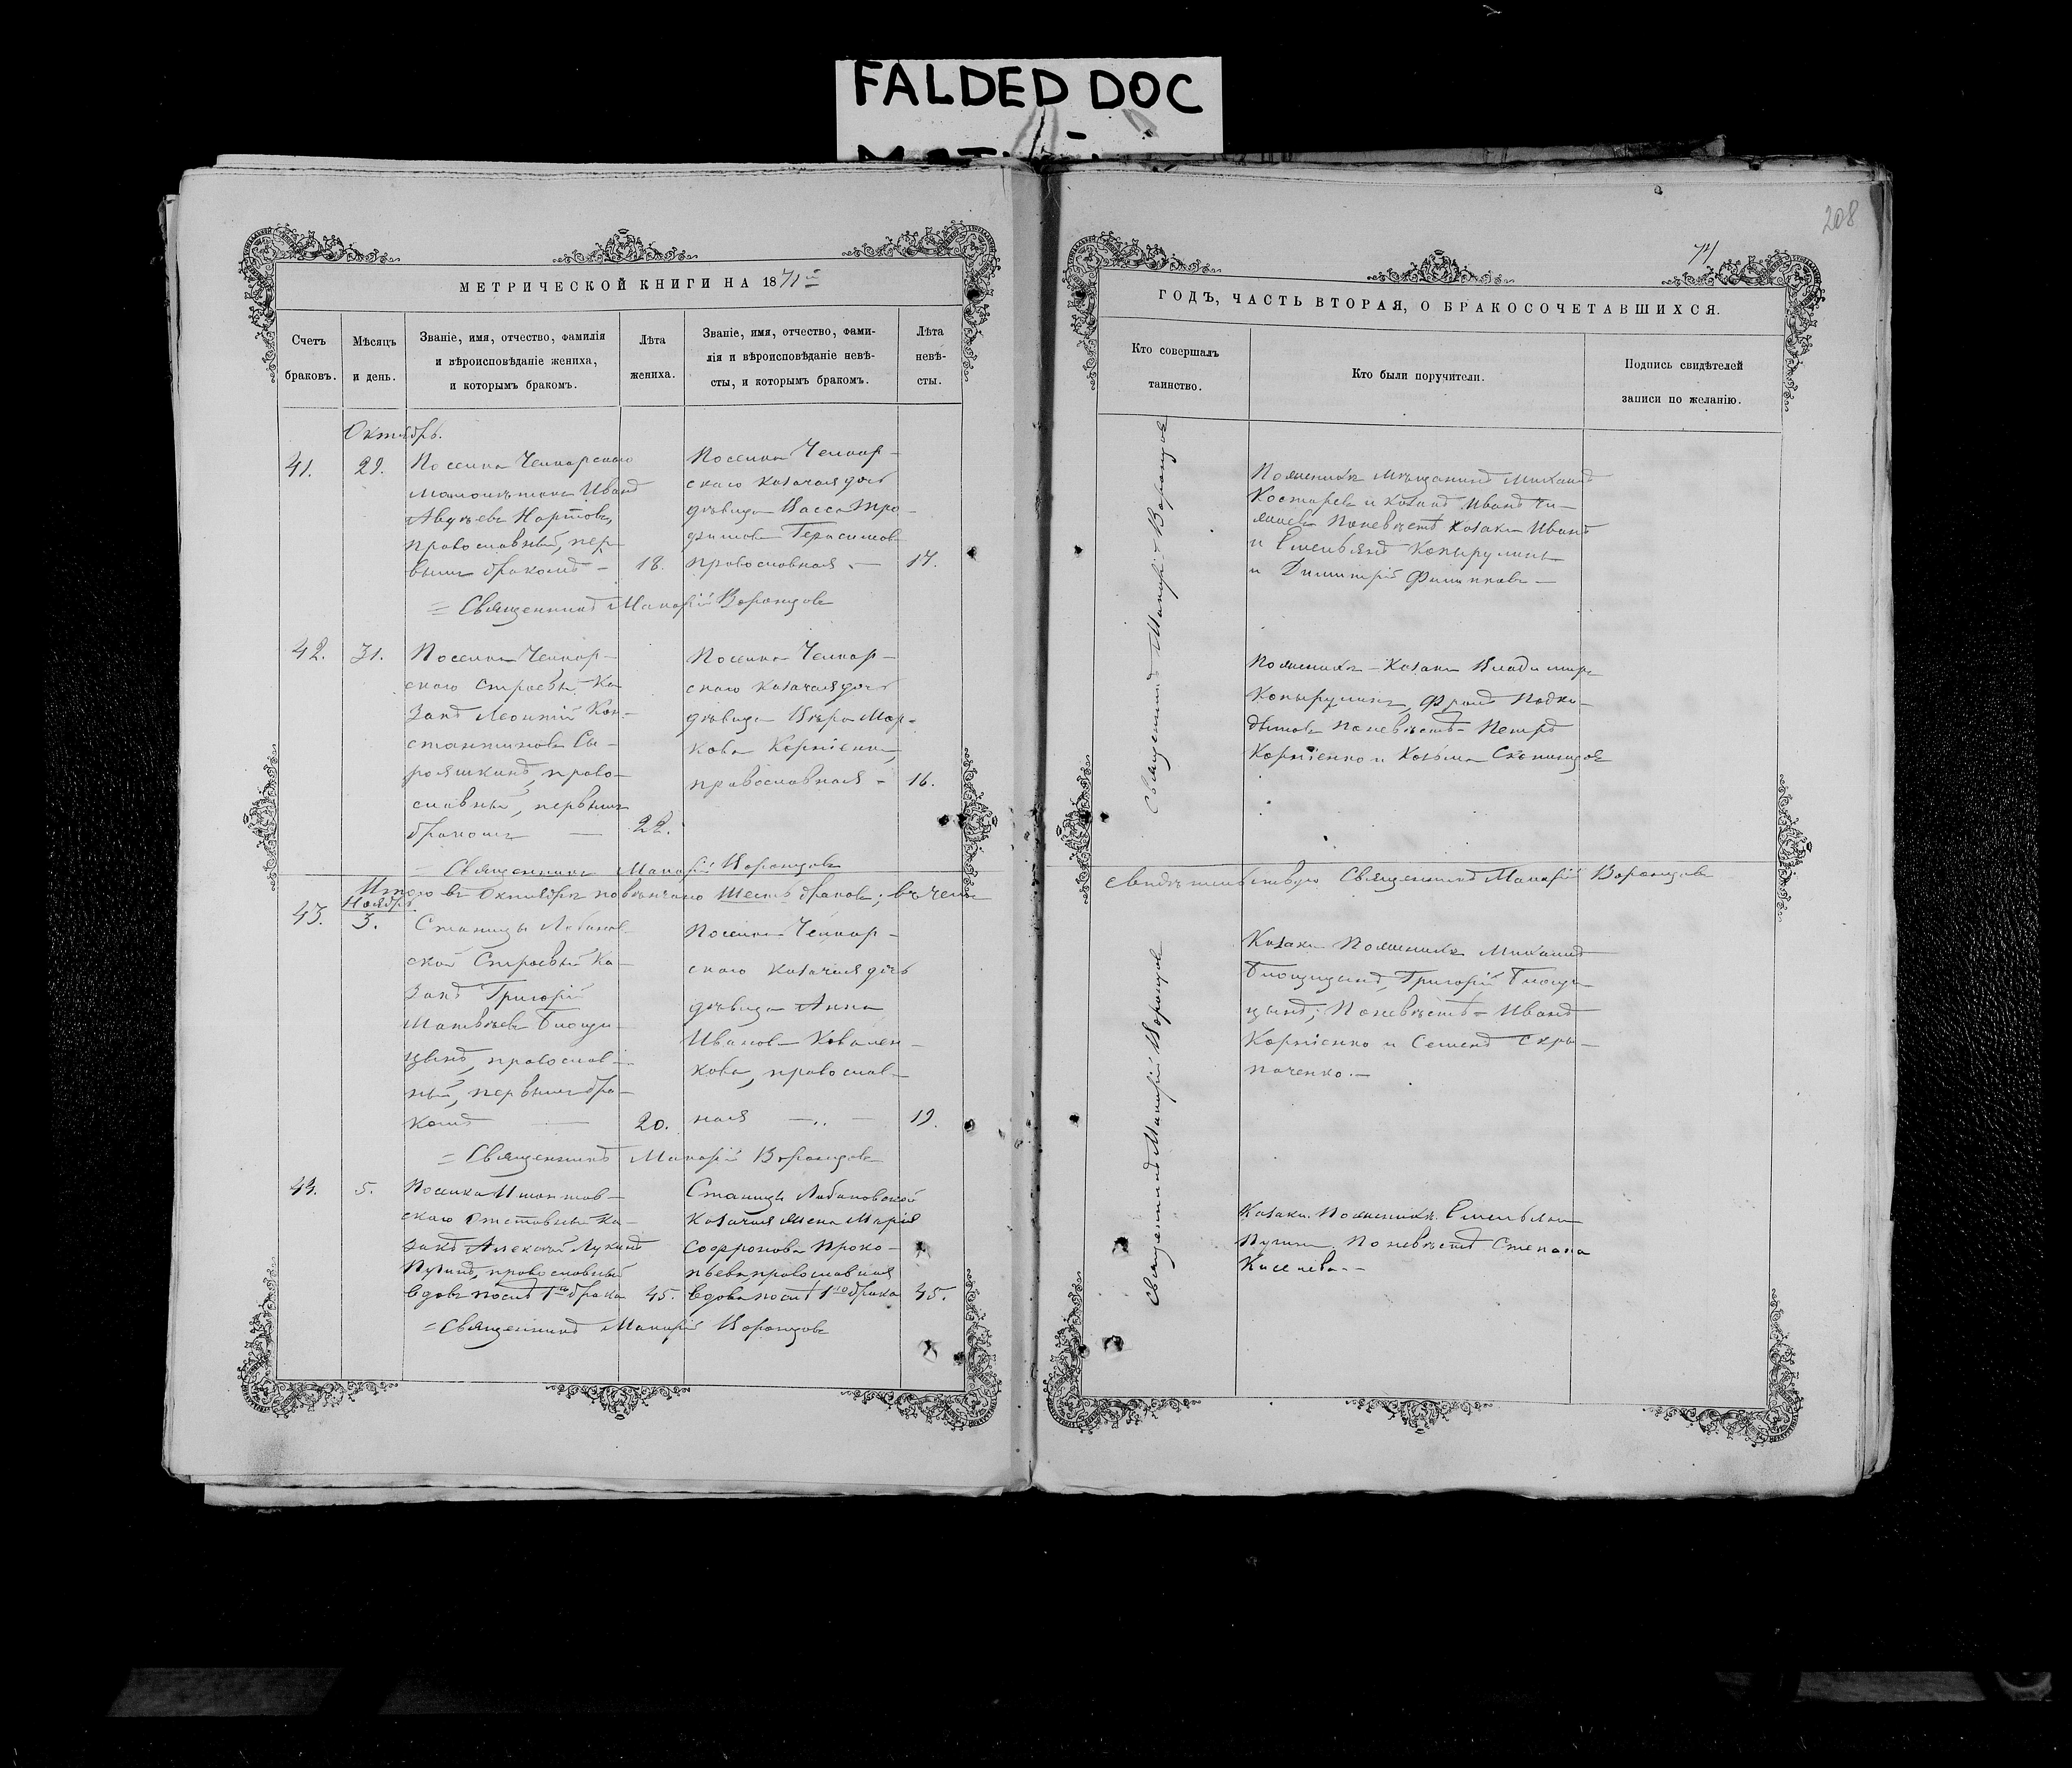 FALDED DOC
208
71
МЕТРИЧЕСКОЙ КНИГИ НА 1871й
Счетъ браковъ.
Мѣсяцъ и день.
Званіе, имя, отчество, фамилія
и вѣроисповѣданіе жениха,
и которымъ бракомъ.
Лѣта жениха.
Званіе, имя, отчество, фами-
лія и вѣроисповѣданіе невѣ-
сты, и которымъ бракомъ.
Лѣта
невѣ-
сты.
Октябрь.
41.
29.
Поселка Челкарскаго
малолѣтокъ Иванъ
православный, пер-
вымъ бракомъ –
18.
Поселка Челкар-
скаго козачья дочь
дѣвица Васса Тро-
фимова Герасимова
православная. –
17.
= Священникъ Макарій Воронцовъ
42.
31.
Поселка Челкар-
скаго строевый Ка-
закъ Леонтій Кон-
стантиновъ Сы-
ромяшкинъ, право-
славный, первымъ
бракомъ —
22.
Поселка Челкар-
скаго козачья дочь
дѣвица Вѣра Мар-
кова Корніенко,
православная –
16.
= Священникъ Макарій Воронцовъ
Итого въ Октябрѣ повѣнчано шесть браковъ; въ чемъ
Ноябрь
43.
3.
Станицы Лобанов-
ской Строевый Ка-
закъ Григорій
Матвѣевъ
цынъ, православ-
ный, первымъ бра-
комъ —
20.
Поселка Челкар-
скаго козачья дочь
дѣвица Анна
Иванова Ковален-
кова, православ-
ная —
19.
= Священникъ Макарій Воронцовъ
44.
5.
Поселка Имантав-
скаго отставный ка-
закъ Алексѣй Лукинъ
православный
вдовъ послѣ 1го брака
45.
Станицы Лобановской
козачья жена Марія
Софронова Проко-
пьева, православная
вдова послѣ 1го брака
45.
= Священникъ Макарій Воронцовъ
ГОДЪ, ЧАСТЬ ВТОРАЯ, О БРАКОСОЧЕТАВШИХСЯ.
Кто совершалъ
таинство.
Кто были поручители.
Подпись свидѣтелей
записи по желанію.
Священникъ Макарій Воронцовъ
По женихѣ мѣщанинъ Михаилъ
Костаревъ и козакъ Иванъ
По невѣстѣ козаки Иванъ
и Емельянъ Копырулины
и Димитрій Филипповъ –
По женихѣ – Козаки Владимиръ
Копырулинъ, Фролъ Подко-
по невѣстѣ – Петръ
Корніенко и Козьма Скопинцовъ
свидѣтельствую Священникъ Макарій Воронцовъ
Священникъ Макарій Воронцовъ
Козаки По женихѣ Михаилъ
Григорій
цынъ; По невѣстѣ – Иванъ
Корніенко и Семенъ Скры-
паченко. –
Козаки. По женихѣ. Емельянъ
По невѣстѣ Степанъ
Киселевъ. –